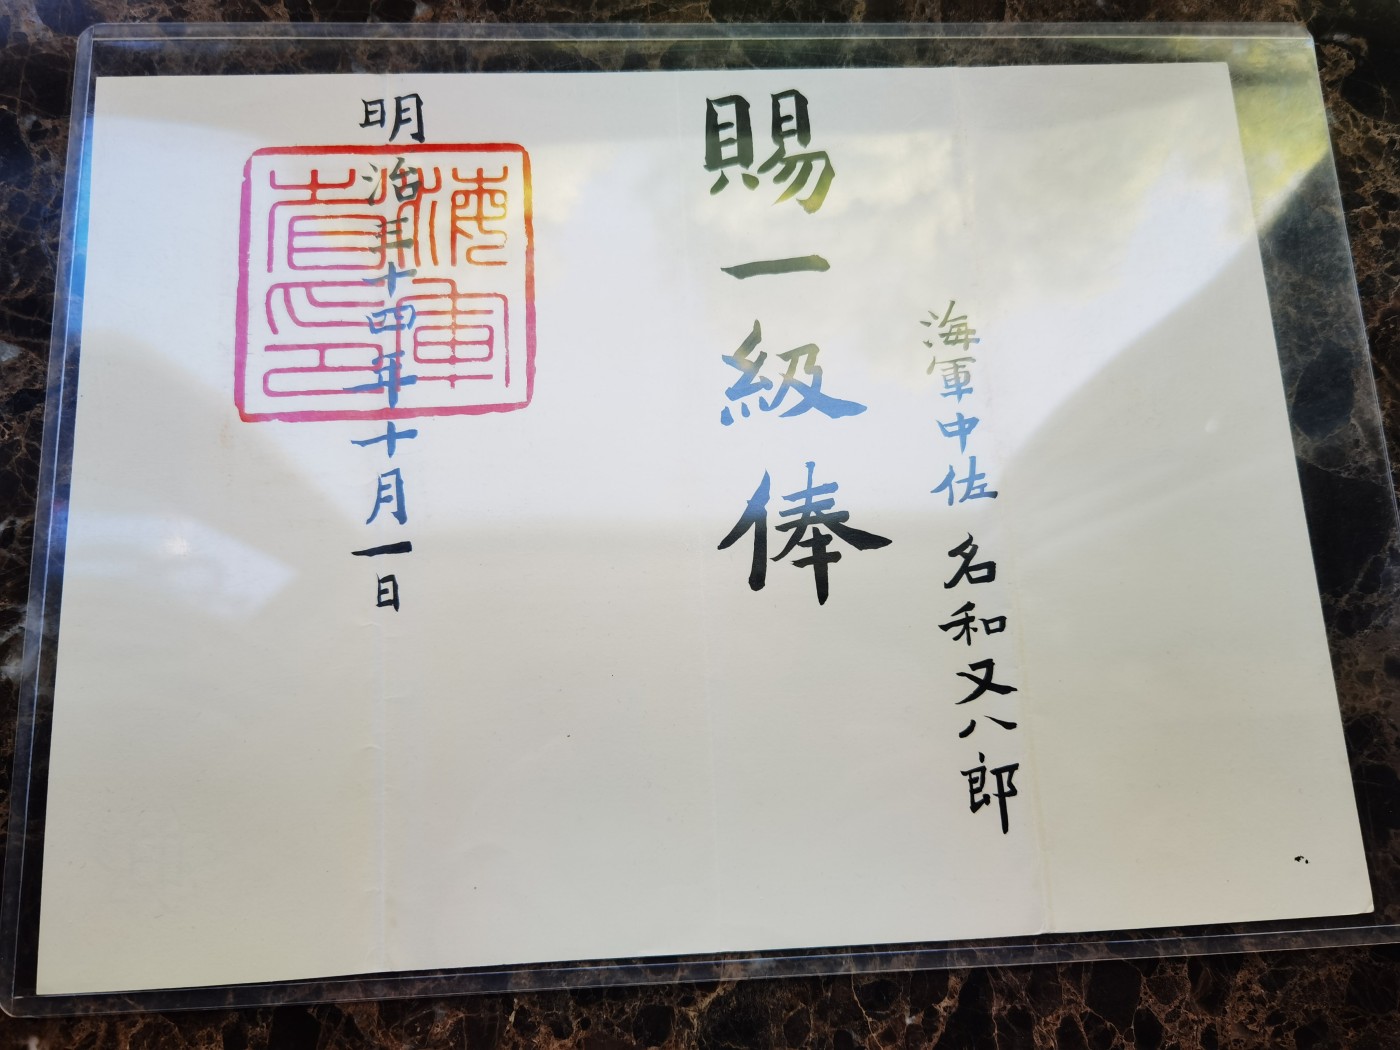 海軍中佐 名和又八郎
賜一級俸
明治三十四年十月一日
海軍省印